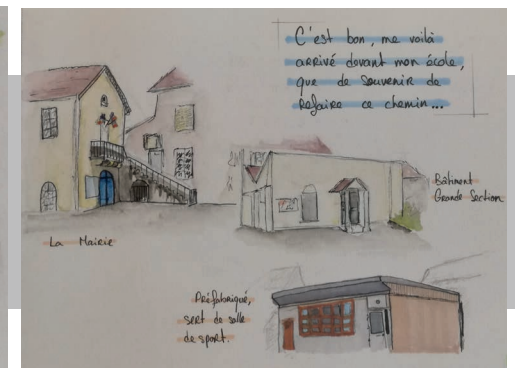 C'est bon, me voilà
arrivé devant mon école,
que de souvenir de
refaire ce chemin...
La Mairie
Bâtiment
Grande Section
Préfabriqué,
sert de salle
de sport.